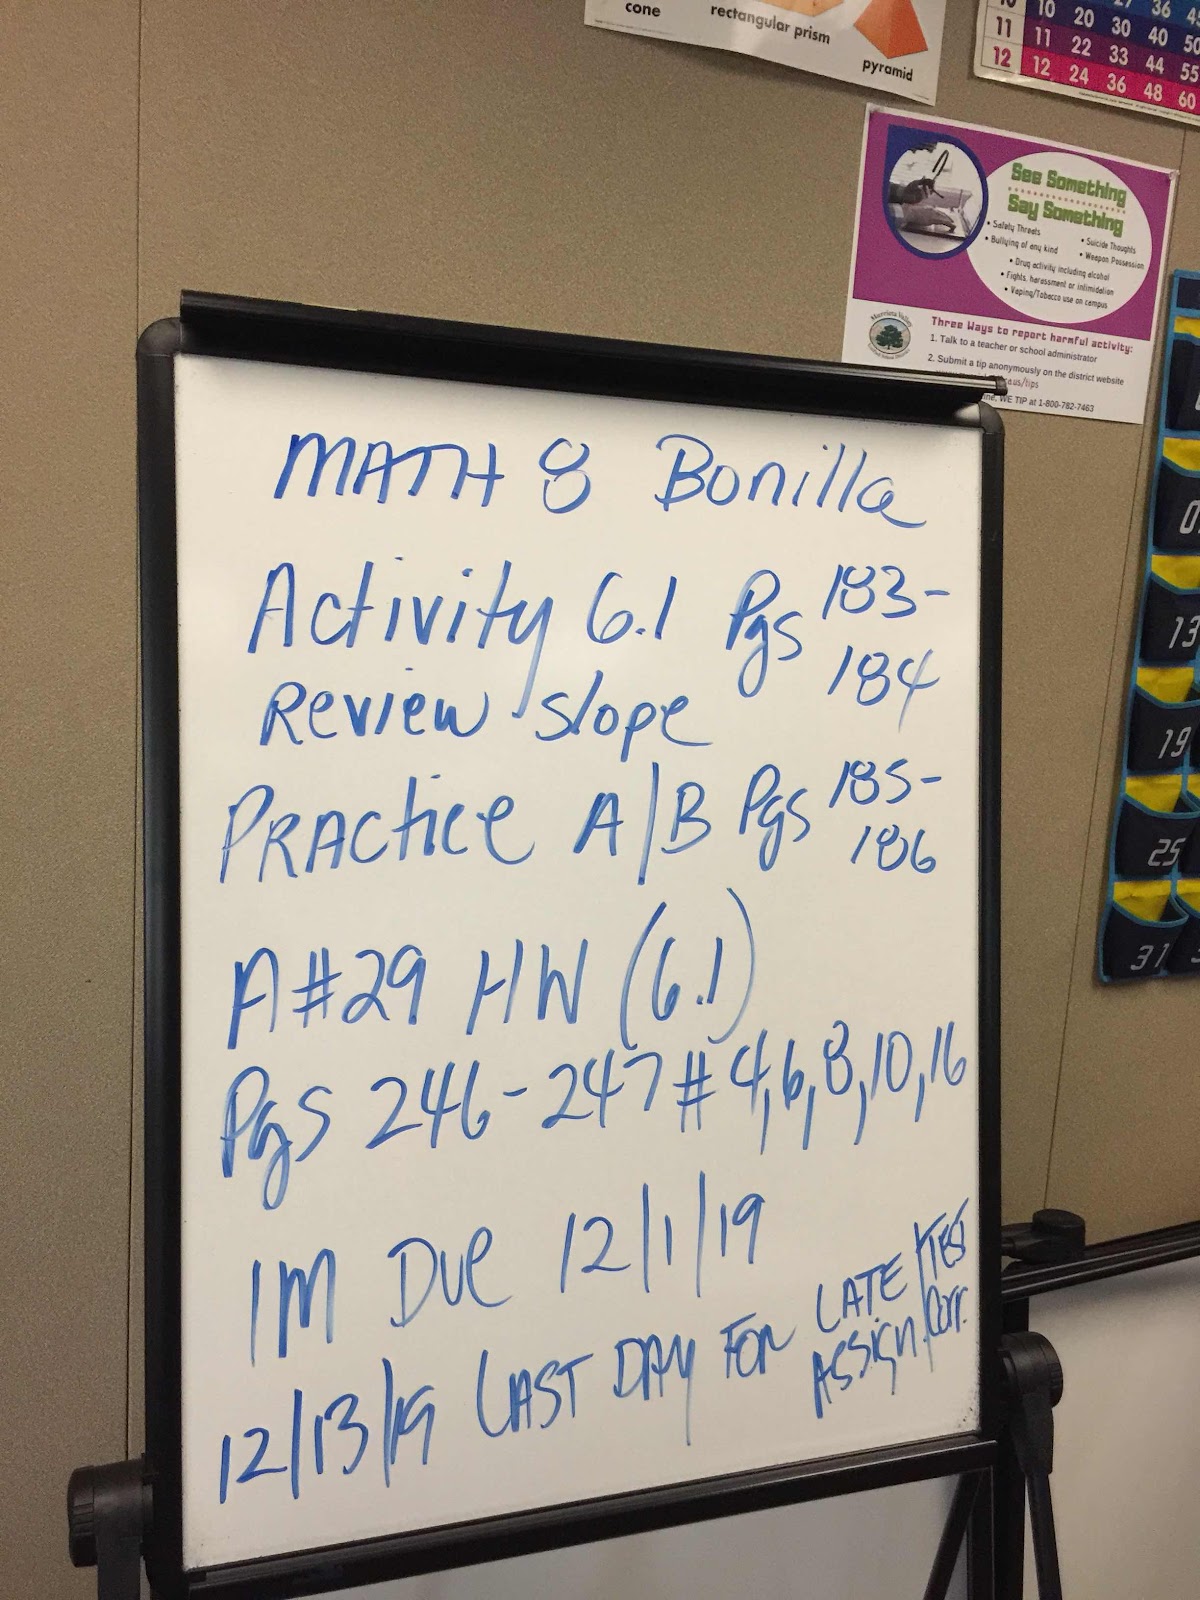 cone
rectangular prism
pyramid
27 36 45
10 10 20 30 40 50
11 11 22 33 44 55
12 12 24 36 48 60
See Something
Say Something
• Safety Threats
• Bullying of any kind
• Suicide Thoughts
• Weapon Possession
• Drug activity including alcohol
• Fights, harassment or intimidation
• Vaping/Tobacco use on campus
Murrieta Valley
Three Ways to report harmful activity:
1. Talk to a teacher or school administrator
2. Submit a tip anonymously on the district website
us/tips
ine, WE TIP at 1-800-782-7463
MATH 8 Bonilla
Activity 6.1 Pgs 183-
184
Review slope
PRACtice A/B Pgs 185-
186
A#29 HW (6.1)
Pgs 246-247 # 4,6,8,10,16
IM Due 12/1/19
12/13/19 LAST DAY FOR LATE /TEST
ASSign. /Corr.
13
19
25
31